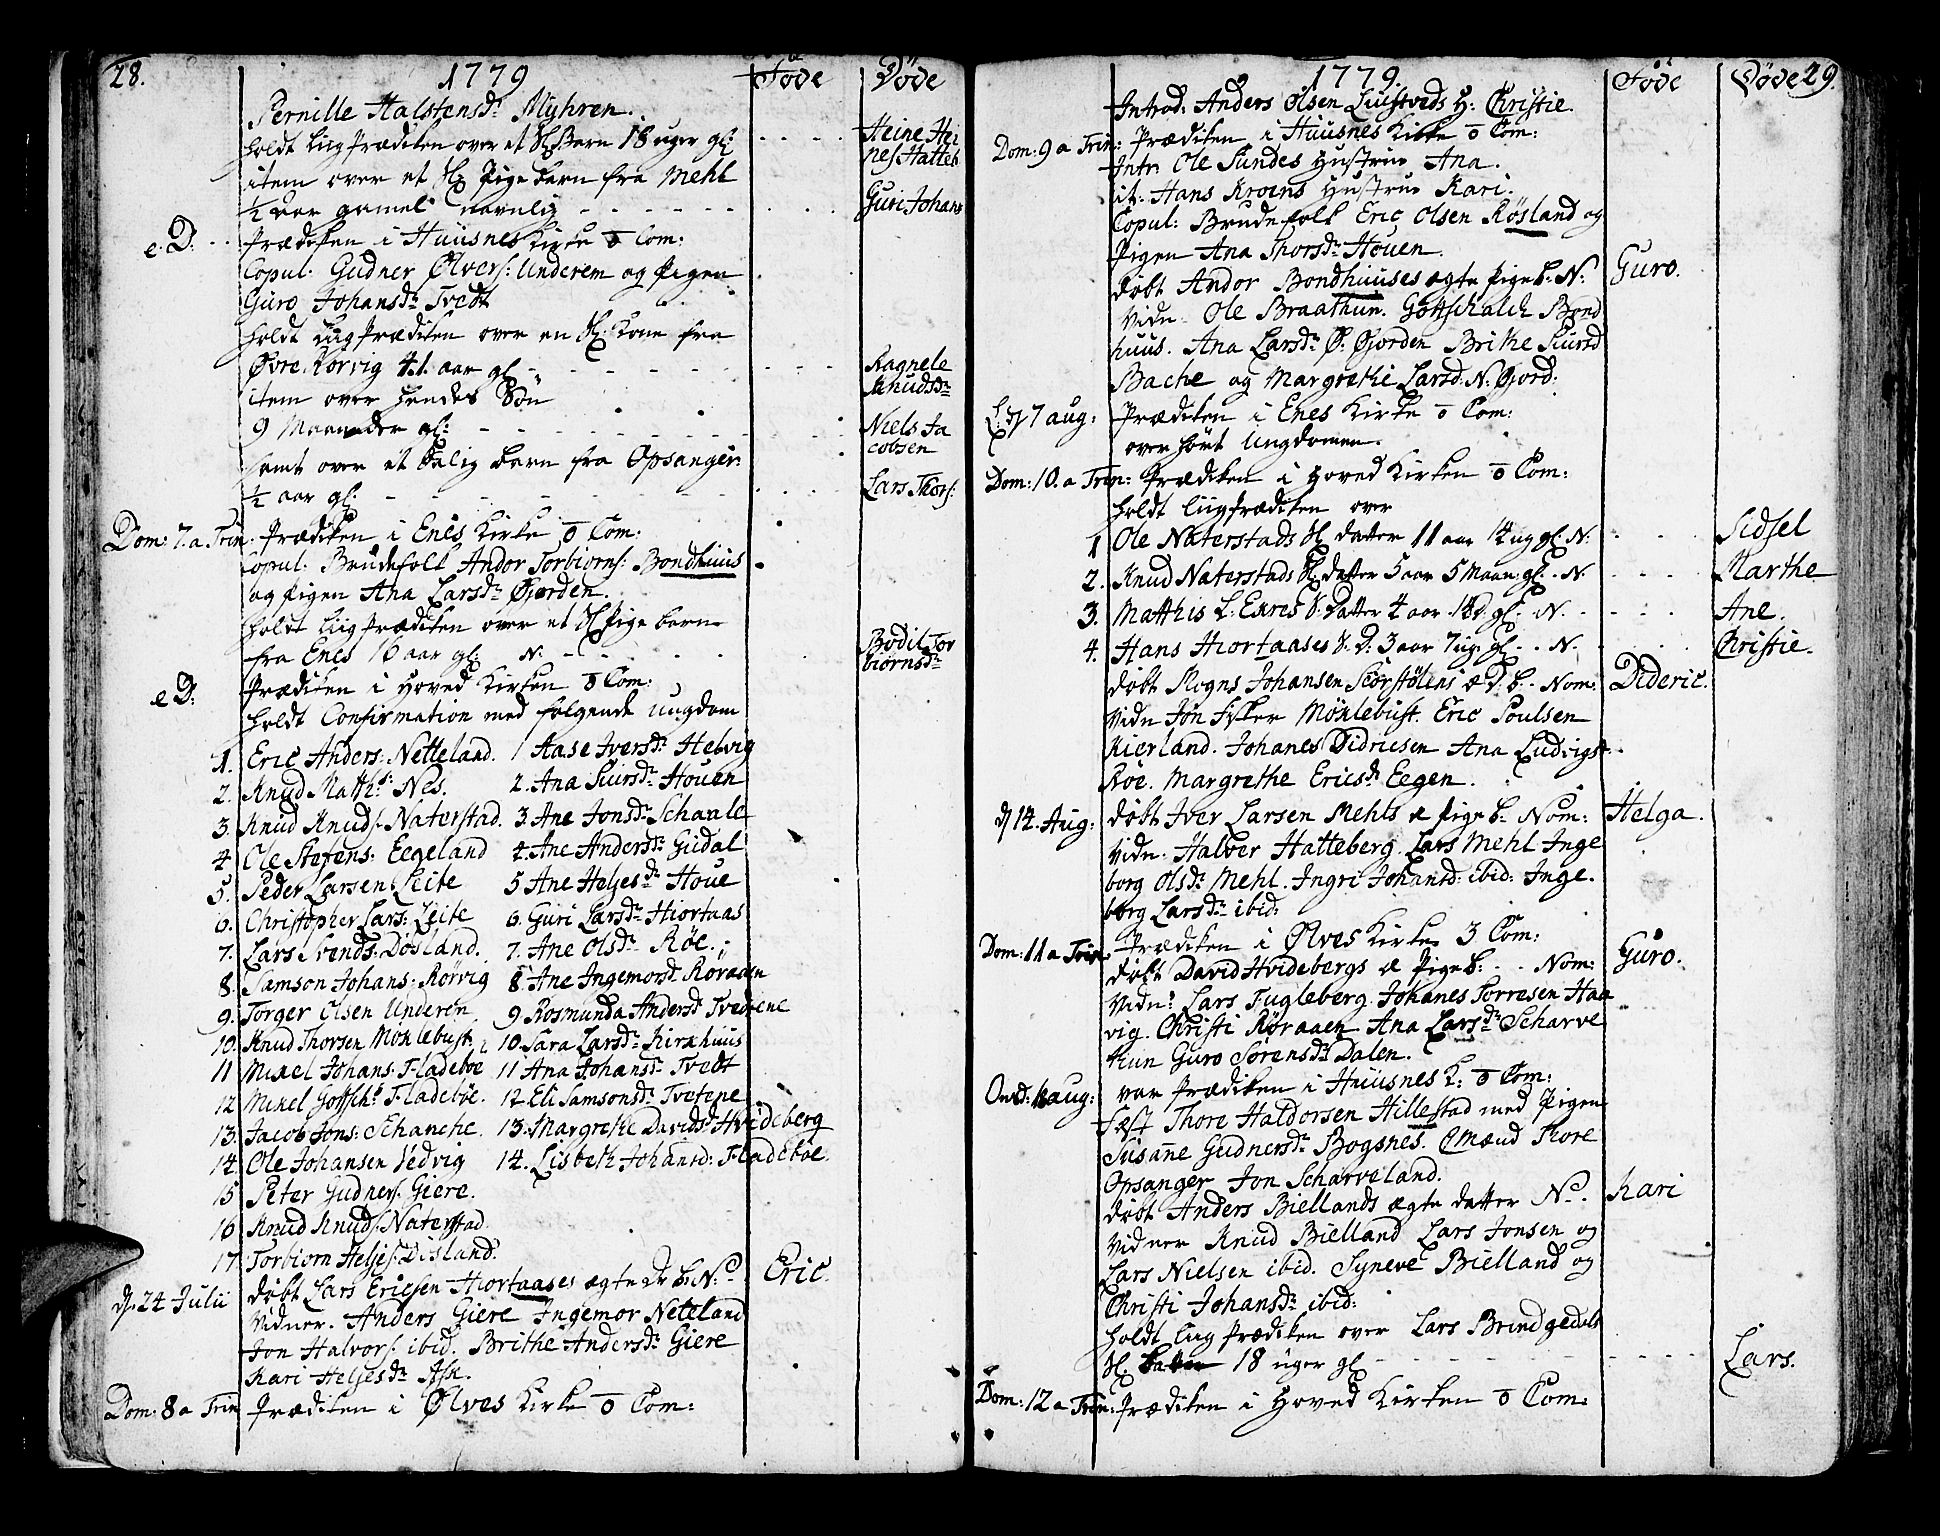 28.
1779
Föde
Döde
Pernille Halstensdr Myhren.
holdt liigprædiken over et Sl. Barn 18 uger gl:
Heine Hei
nes Hatteb
item over et Sl. Pige barn fra Mehl
1/2 aar gamel navnlig
Guri Johans
e. D: Prædiken i Huusnes Kirke 0 Com:
Copul: Gudner Ølvers: Underem og Pigen
Guro Johansdr Tvedt
holdt liigprædiken over en Sl. Kone fra
Øvre Rørvig 41 aar gl
Ragnele
Knudsdr
item over hendes Søn
9 Maaneder gl:
Niels Ja
cobsen
samt over et barn fra Opsanger
1/2 aar gl.
Lars Thors:
Dom: 7. a Trin. Prædiken i Enes Kirke 0 Com:
Copul: Brudefolk Andor Torbiorns: Bondhuus
og Pigen Ana Larsdr Øjerden.
holdt liigprædiken over et Sl Pige barn
fra Enes 16 aar gl. N:
Bodil Tor
biørnsdr
e D: Prædiken i Hoved Kirken 0 Com:
holdt Confirmation med følgende ungdom
1. Eric Anders: Netteland. 1 Aase Iversdr Helvig
2. Knud Matths: Nes. 2. Ana Siursdr Houen
3. Knud Knuds. Naterstad. 3. Ane Jonsdr Schaale
4 Ole Stefens: Eegeland 4. Ane Andersdr Gudal
5. Peder Larsen Leite 5 Ane Heljesdr Houe
6. Christopher Lars: Leite 6. Guri Larsdr Hiortaas
7. Lars Svends: Dosland. 7. Ane Olsdr Røe.
8. Samson Johans: Rörvig 8. Ane Ingemorsd Röraaen
9. Torger Olsen Underen 9 Rosmunda Andersd Tvedtene
10. Knud Thorsen Möxlebust. 10. Sara Larsdr Kirkhuus
11 Mikel Johans. Fladeboe 11 Ana Johansdr Tvedt
12 Mikel Gottsch: Fladeböe. 12. Eli Samsonsdr Tvetene
13. Jacob Jons: Schanche. 13. Margrethe Davidsd Hvideberg
14. Ole Johansen Vedvig 14. Lisbeth Johansd: Fladeboe.
15 Peter Gudners. Giere.
16 Knud Knuds. Naterstad.
17. Torbiorn Heljes. Disland.
d. 24 Julii döbt Lars Ericsen Hiortaases ægte Dr b. N.
Eric.
Vidner. Anders Giere Ingemor Neteland
Jon Halvors. ibid. Brithe Andersdr Giere
Kari Heljesdr Ask.
Dom: 8 a Trin Prædiken i Ølves Kirke 0 Com:
1779.
Föde
Döde 29.
Introd. Anders Olsen Luustveds H: Christie.
Dom: 9 a Trin: Prædiken i Huusnes Kirke 0 Com:
Intr. Ole Sundes Hustrue Ana.
it. Hans Kroens Hustrue Kari.
Copul: Brudefolk Eric Olsen Røsland og
Pigen Ana Thorsdr Houen.
döbt Andor Bondhuuses ægte Pigeb. N.
Guro.
Vidn. Ole Braathun. Gottschalck Bond
huus. Ana Larsdr Ø. Øjorden Brithe Siursd
Bache og Margrethe Larsd. N. Gjord:
d 7 aug: Prædiken i Enes Kirke 0 Com:
overhört Ungdomen.
Dom: 10. a Trin: Prædiken i Hoved Kirken 0 Com:
holdt liigprædiken over
1 Ole Naterstads Sl datter 11 aar 14 ug gl. N:
Sidsel
2. Knud Naterstads Sl. datter 5 aar 5 Maan: gl. N.
Marthe
3. Matthis L: Enres S. Datter 4 aar 14 d. gl. N.
Ane.
4. Hans Hiortaases S. D. 3 aar 7 ug. gl. N.
Christie.
döbt Mogns Johansen Skorstølens æ D. b. Nom:
Dideric.
Vidn Jon Fisker Möxlebust. Eric Poulsen
Kierland. Johanes Didricsen Ana Ludvigs
Röe. Margrethe Ericsdr Eegen.
d 14. Aug: döbt Iver Larsen Mehls æ Pige b. Nom:
Helga.
Vidn. Halver Hatteberg. Lars Mehl. Inge
borg Olsdr Mehl. Ingri Johansd: ibid: Inge.
borg Larsdr ibid:
Dom: 11 a Trin Prædiken i Ølves Kirke. 3 Com:
döbt David Hvidebergs æ Pigeb. Nom:
Guro.
Vidn: Lars Fugleberg. Johanes Torresen Haa
vig. Christi Röraaen Ana Larsdr Scharve
tun Guro Sörensdr Dalen.
Onsd. 18 aug: var Prædiken i Huusnes K: 0 Com:
Fæst Thore Haldorsen Hillestad med Pigen
Susane Gudnersdr Bogsnes. Cmænd Thore
Opsanger Jon Scharveland.
döbt Anders Biellands ægte datter N.
Kari
Vidner Knud Bielland Lars Jonsen og
Lars Nielsen ibid. Syneve Bielland og
Christi Johansdr ibid:
holdt liig Prædiken over Lars Brindgedals
Sl. 18 uger gl
Lars.
Dom: 12 a Trin: Prædiken i Hoved Kirken 0 Com: